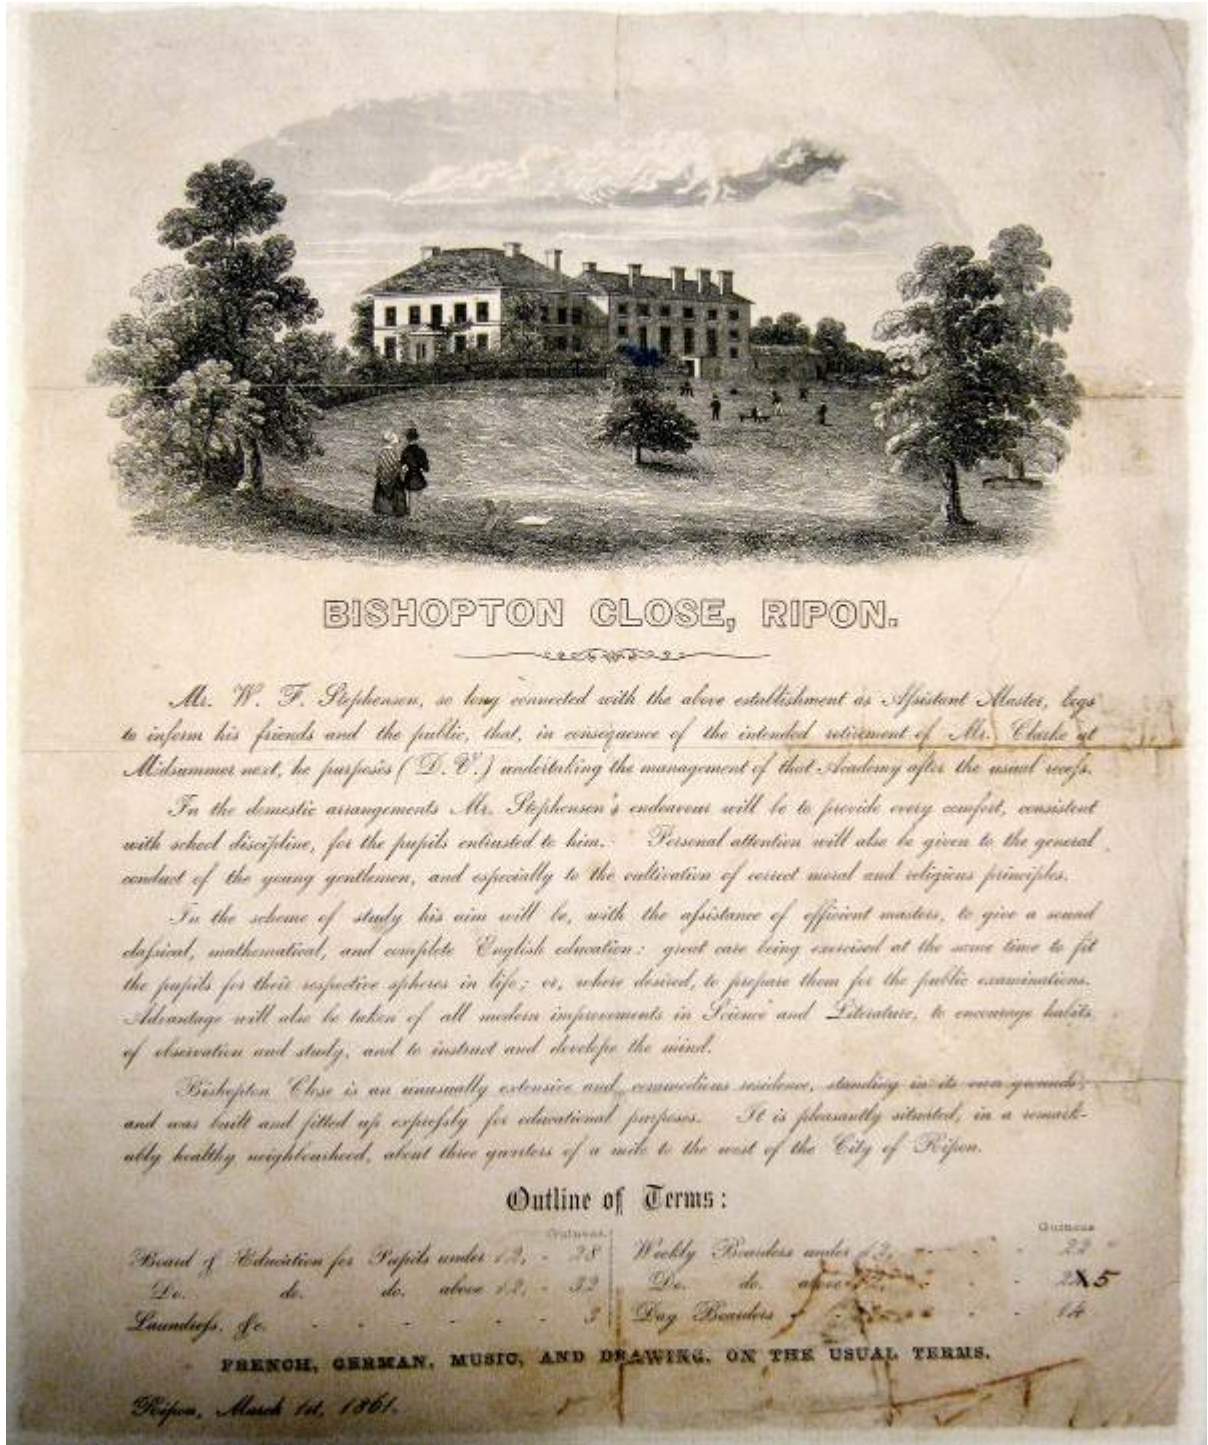 BISHOPTON CLOSE, RIPON.
Mr. W. F. Stephenson, so long connected with the above establishment as Assistant Master, begs
to inform his friends and the public, that, in consequence of the intended retirement of Mr. Clarke at
Midsummer next, he purposes (D. V.) undertaking the management of that Academy after the usual recess.
In the domestic arrangements Mr. Stephenson's endeavour will be to provide every comfort, consistent
with school discipline, for the pupils entrusted to him. Personal attention will also be given to the general
conduct of the young gentlemen, and especially to the cultivation of correct moral and religious principles.
In the scheme of study his aim will be, with the assistance of efficient masters, to give a sound
classical, mathematical, and complete English education: great care being exercised at the same time to fit
the pupils for their respective spheres in life; or, where desired, to prepare them for the public examinations.
Advantage will also be taken of all modern improvements in Science and Literature, to encourage habits
of observation and study, and to instruct and develope the mind.
Bishopton Close is an unusually extensive and commodious residence, standing in its own grounds,
and was built and fitted up expressly for educational purposes. It is pleasantly situated, in a remark-
ably healthy neighbourhood, about three quarters of a mile to the west of the City of Ripon.
Outline of Terms:
Guineas
Board & Education for Pupils under 12, - 28
Do. do. do. above 12, - 32
Laundress, &c. - - - - - - 3
Guineas
Weekly Boarders under 12, - - - 22
Do. do. above 12, - - 5
Day Boarders - - - - 14
FRENCH, GERMAN, MUSIC, AND DRAWING, ON THE USUAL TERMS.
Ripon, March 1st, 1861.